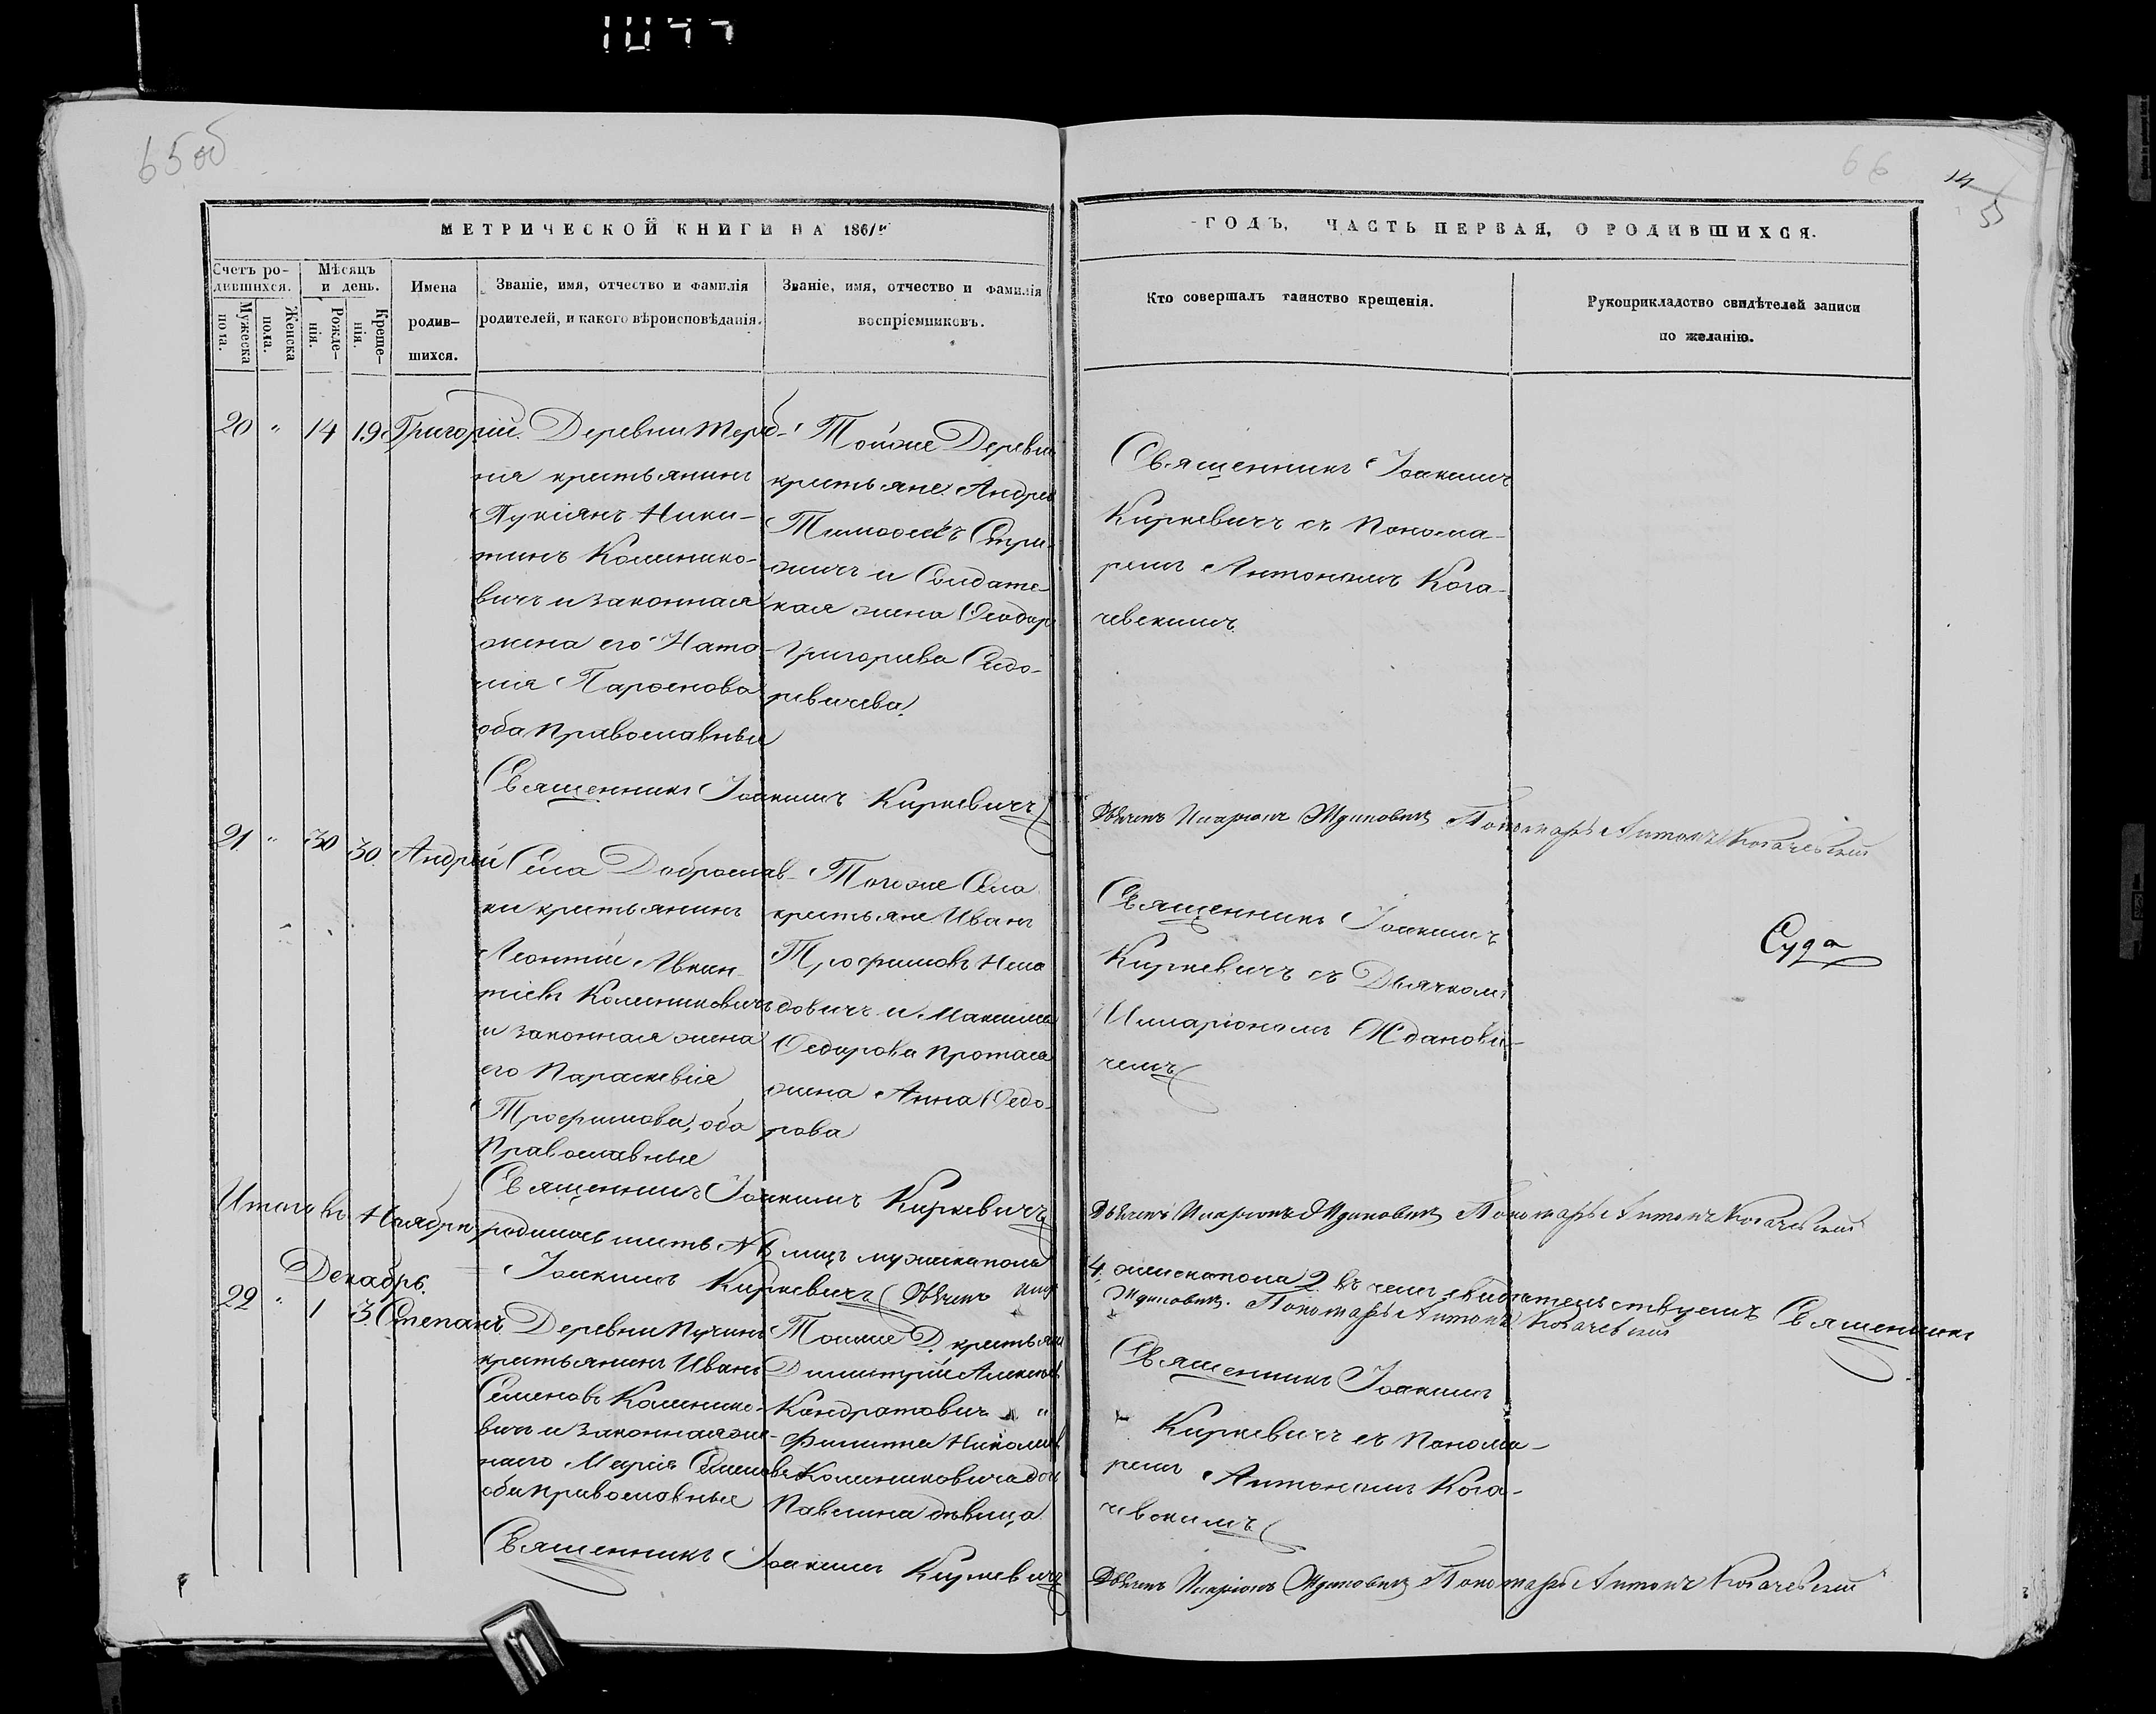 65 об
66
14
55
МЕТРИЧЕСКОЙ КНИГИ НА 1861й
ГОДЪ, ЧАСТЬ ПЕРВАЯ, О РОДИВШИХСЯ.
Счетъ ро-
дившихся.
Мужеска
пола.
Женска
пола.
Мѣсяцъ
и день.
Рожде-
нія.
Креще-
нія.
Имена
родив-
шихся.
Званіе, имя, отчество и фамилія
родителей, и какого вѣроисповѣданія.
Званіе, имя, отчество и фамилія
воспріемниковъ.
Кто совершалъ таинство крещенія.
Рукоприкладство свидѣтелей записи
по желанію.
20 " 14 19 Григорій
Деревни
крестьянинъ
Лукіянъ Ники-
тинъ Коленико-
вичъ и законная
жена его Ната-
лія Парѳенова
оба Православные
Тойже Деревни
крестьяне Андрей
Тимоѳеевъ
и Солдатс-
кая жена Ѳеодор
Григорьева Сидо-
ревичева
Священникъ Іоакимъ
Киркевичъ съ Понома-
ремъ Антономъ Кога-
чевскимъ
Священникъ Іоакимъ Киркевичъ
Дьячекъ Иларіонъ Ждановичъ Пономарь Антонъ Когачевскій
21 " 30 30 Андрей
Села Доброслав-
ки крестьянинъ
Леонтій
Колениковичъ
и законная жена
его Параскевія
Трофимова, оба
Православные
Тогоже Села
крестьяне Иванъ
Трофимовъ
и Максима
Ѳедорова
жена Анна Ѳедо-
рова
Священникъ Іоакимъ
Киркевичъ съ Дьячкомъ
Илларіономъ Жданови-
чемъ
Священникъ Іоакимъ Киркевичъ
Дьячекъ Иларіонъ Ждановичъ Пономарь Антонъ Когачевскій
Итого въ Ноябрѣ родилось шесть № 6 лицъ мужеска пола
4, женска пола 2. въ чемъ свидѣтельствуемъ Священникъ
Іоакимъ Киркевичъ Дьячекъ
Ждановичъ. Пономарь Антонъ Когачевскій
Декабрь.
22 " 1 3 Степанъ
Деревни Пучинъ
крестьянинъ Иванъ
Семеновъ Коленико-
вичъ и законная же-
на его Марія Семенова
оба Православные
Тойже Д. крестьяне
Димитрій Алексѣевъ
Кондратовичъ и
Филиппа Николаева
Колениковича доч
Павлина дѣвица
Священникъ Іоакимъ
Киркевичъ съ Понома-
ремъ Антономъ Кога-
чевскимъ
Священникъ Іоакимъ Киркевичъ
Дьячекъ Иларіонъ Ждановичъ Пономарь Антонъ Когачевскій